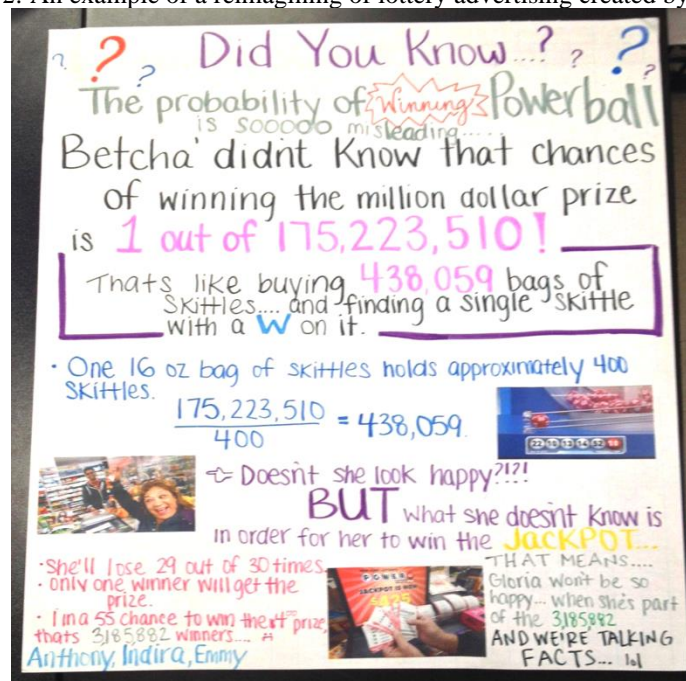 2. An example of a reimagining of lottery advertising created by
? ? ? Did You Know...? ? ? ?
The probability of Winning Powerball
is sooooo misleading.....
Betcha' didnt Know that chances
of winning the million dollar prize
is 1 out of 175,223,510!
Thats like buying 438,059 bags of
Skittles.... and finding a single skittle
with a W on it.
· One 16 oz bag of skittles holds approximately 400
skittles.
175,223,510
400
= 438,059.
22 10 13 14 52
Doesn't she look happy?!?!
BUT what she doesn't Know is
in order for her to win the JaCKPOT...
· She'll lose 29 out of 30 times.
· only one winner will get the
prize.
· 1 in a 55 chance to win the prize,
thats 3,185,882 winners....
Anthony, Indira, Emmy
POWER
JACKPOT IS NOW
$425
THAT MEANS....
Gloria won't be so
happy... when she's part
of the 3,185,882
AND WE'RE TALKING
FACTS... lol